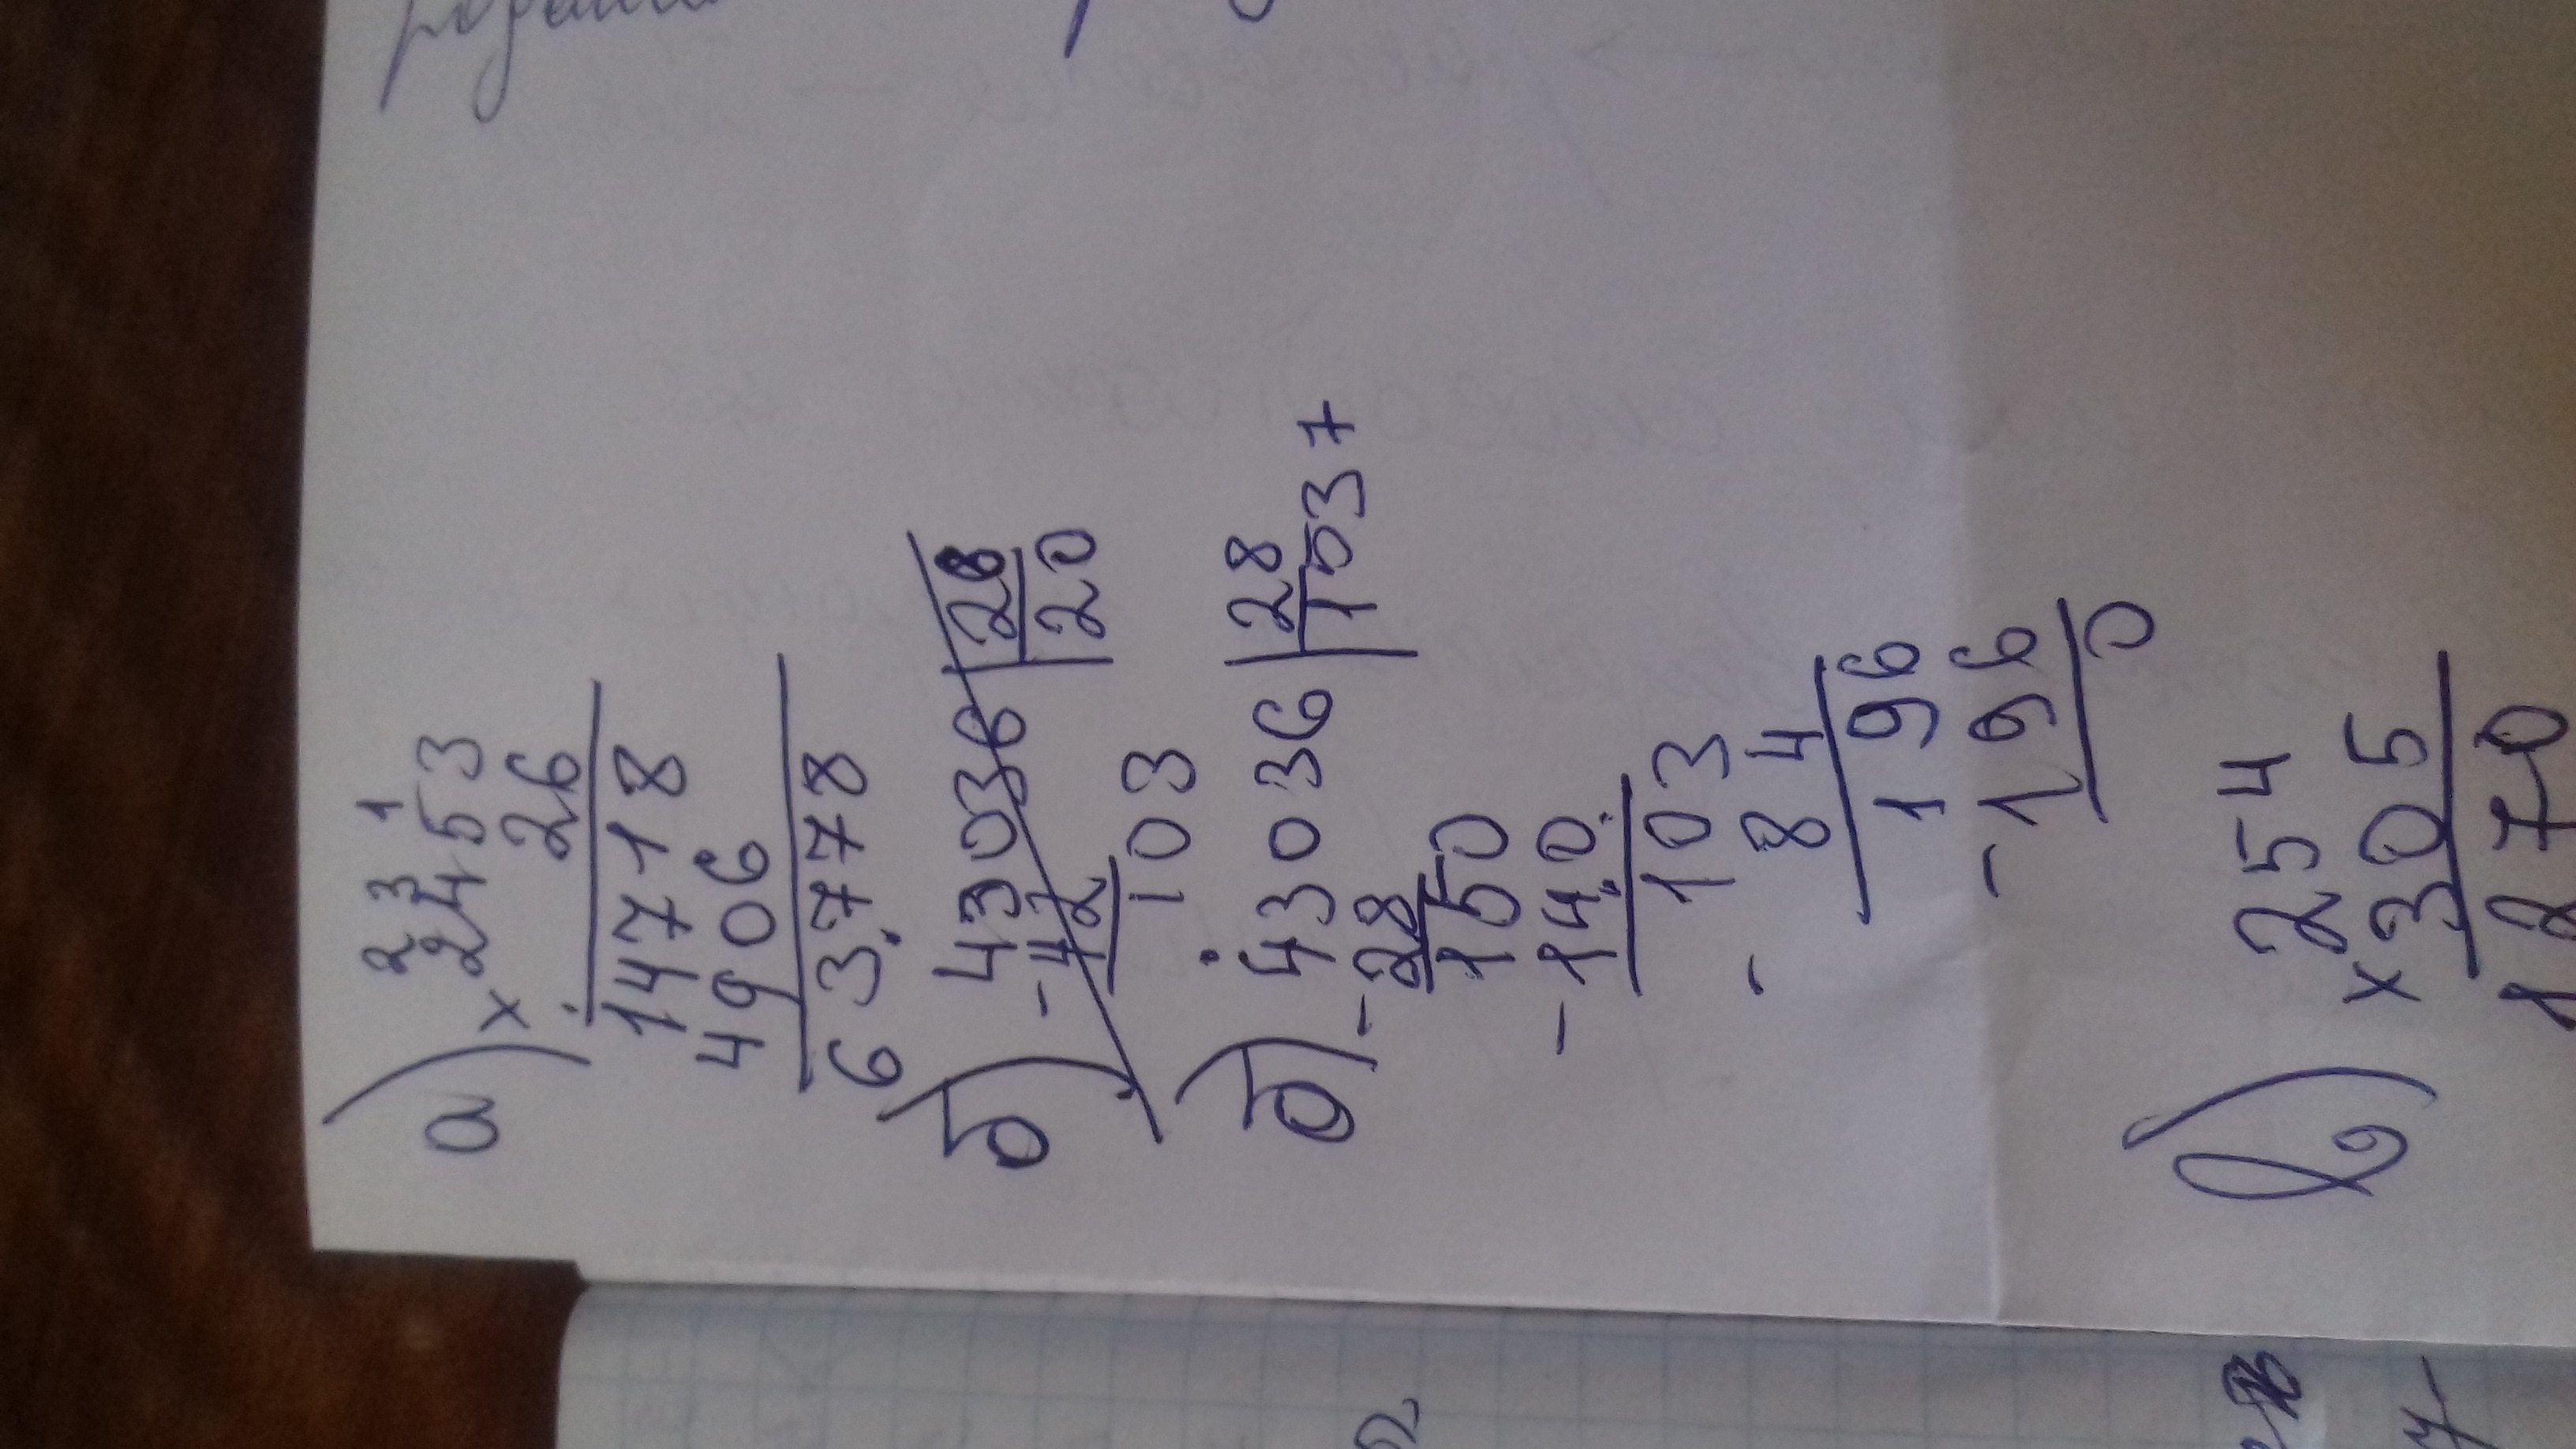 а)
2 3 1
× 2453
26
14718
4906
63778
б) 43036 | 28
- 42 | 20
103
б) 43036 | 28
- 28 | 1537
150
- 140
103
- 84
196
- 196
0
в) 254
× 305
1270